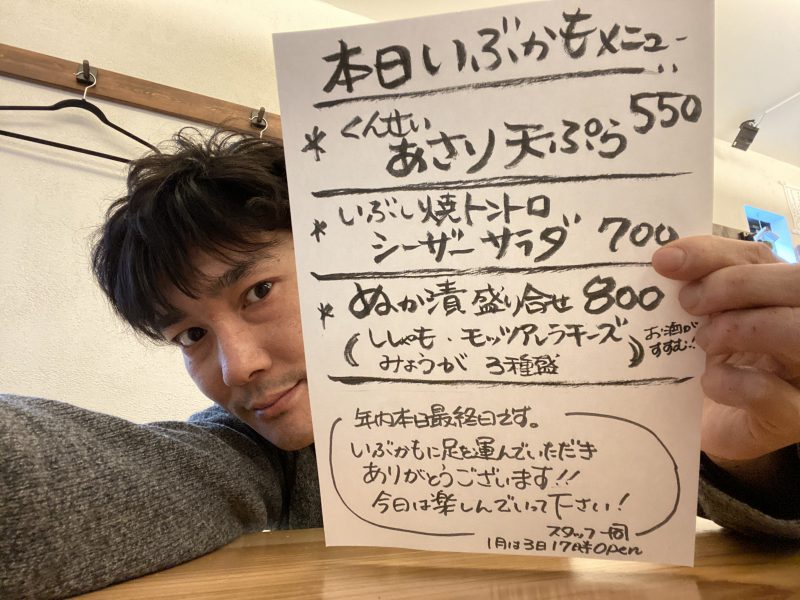 本日いぶかもメニュー
*くんせい
あさり天ぷら 550
*いぶし焼トントロ
シーザーサラダ 700
*ぬか漬盛り合せ 800
(ししゃも・モッツアレラチーズ
みょうが 3種盛)
お酒が
すすむ!!
年内本日最終日です。
いぶかもに足を運んでいただき
ありがとうございます!!
今日は楽しんでいって下さい!
スタッフ一同
1月は3日17時open